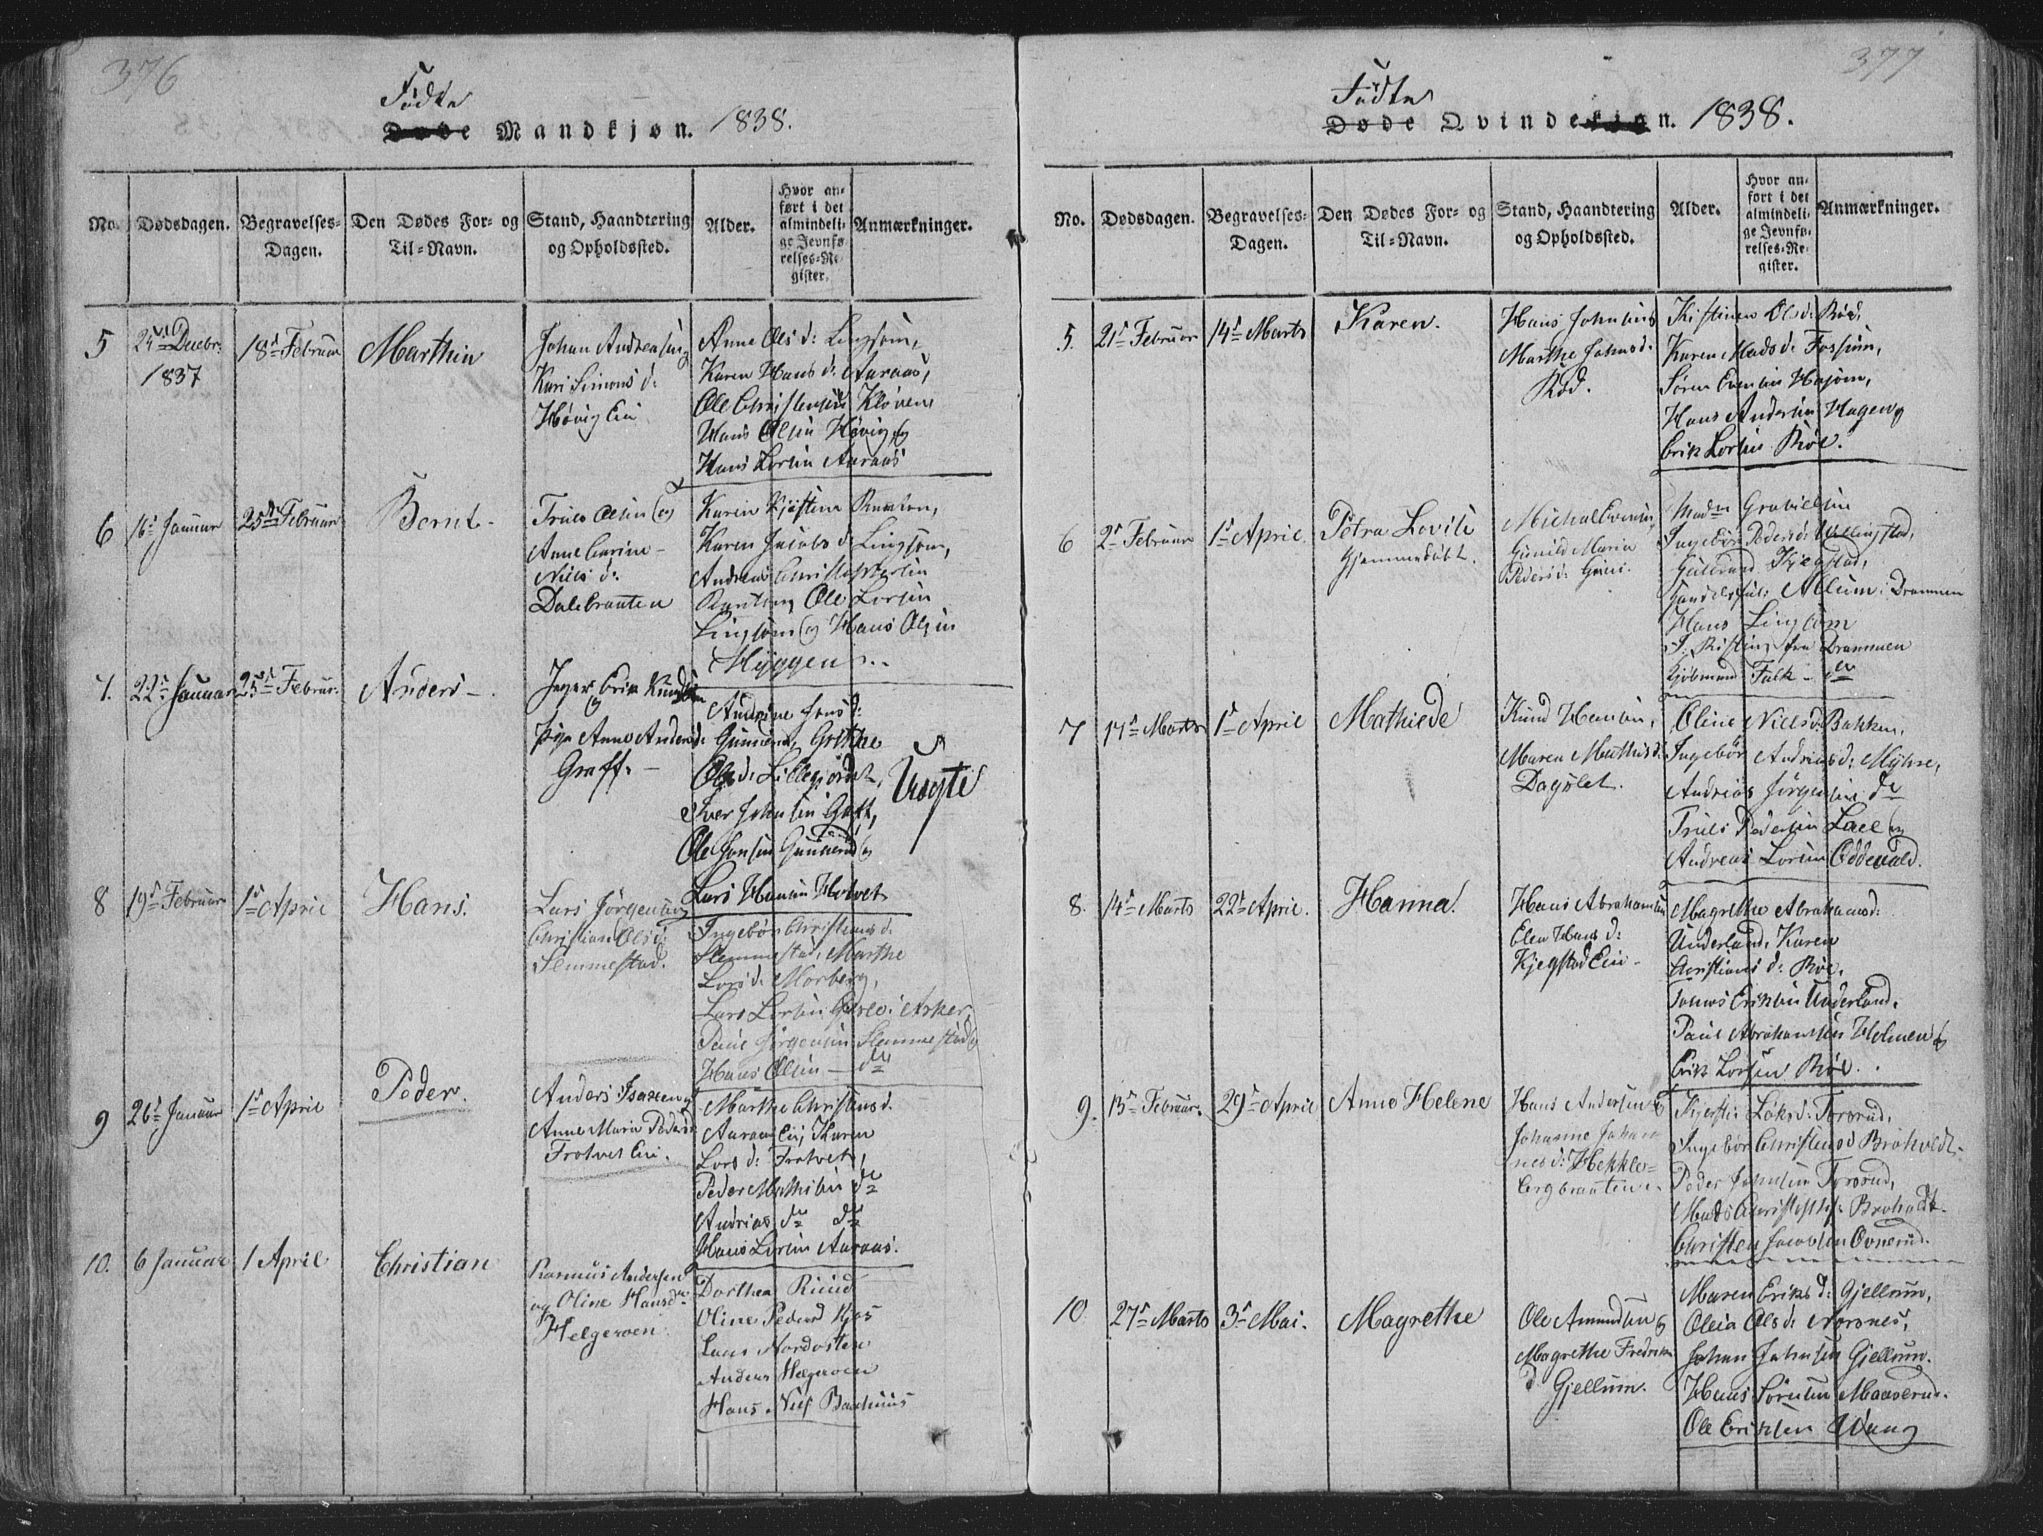 376
Födte
Døde Mandkjøn. 1838.
No.
Dødsdagen.
Begravelses-Dagen.
Den Dødes For- og Til-Navn.
Stand, Haandtering og Opholdssted.
Alder.
Hvor anført i det almindelige Jevnførelses-Register.
Anmærkninger.
5
24de Decbr. 1837
18d Februar
Marthin
Johan Andreasen
Kari Simons d:
Høvig Eie
Anne Ols d: Lingsom,
Karen Hans d: Aaraas,
Ole Christensen Kløven,
Hans Olsen Høvig og
Hans Larsen Aaraas
6
16d Januar
25d Februar
Bernt
Truls Olsen og
Anne Carine
Niels d:
Dalebraaten
Karen Jacobs d: Lingsom,
Andreas Christophersen
Ole Larsen
Lingsom og Hans Olsen
Myggen
7.
22d Januar
25d Februar.
Anders
Erik Knudsen
Pige Anne Anders d:
Graff.
Andrine Jons d:
Gunnerud, Grethe
Ols d: Lillegjordet,
Iver Johnsen
Ole Jonsen Gunnerud og
Lars Hansen Hotvet
Uægte
8
19d Februar
1d April
Hans.
Lars Jørgensen og
Christiane Ols d:
Slemmestad.
Ingebor Christians d:
Slemmestad, Marthe
Lars d: Morberg,
Lars Larsen i Asker
Paul Jørgensen Slemmestad og
Hans Olsen - do
9
26d Januar
1d April
Peder.
Anders Isaksen og
Anne Marie Peders d
Frotvet Eie.
Marthe Christens d.
Aaraas Eie, Karen
Lars d: Frotvet,
Peder Mathisen do
Andreas do do
Hans Larsen Aaraas.
10.
6 Januar
1 April
Christian
Rasmus Andersen
og Oline Hansdr
Helgeroen
Dorthea Riiud
Oline Peders Kjos
Lars Nordvsten
Anders Helgeroen
Hans
377
Födte
Døde Qvindekjøn. 1838.
No.
Dødsdagen.
Begravelses-Dagen.
Den Dødes For- og Til-Navn.
Stand, Haandtering og Opholdssted.
Alder.
Hvor anført i det almindelige Jevnførelses-Register.
Anmærkninger.
5.
21d Februar
14d Marts
Karen.
Hans Johnsen
Marthe Johns d:
Röd.
Kistine Ols d: Röd,
Karen Mads d: Fossum,
Søren Evensen Hajom,
Hans Andersen Hagen og
Erik Larsen Röe.
6
2d Februar
1d April.
Petra Lovise
hjemmedøbt.
Michal Evensen,
Gunild Marie
Peders d:
Madm Grabielsen
Ingebor Peders d: Hellingstad,
Gulbrand Kjegstad,
Handelsful: Allum: Drammen
Hans Lingsom
fra Drammen
Kjöbmand Falk - do
7
17d Marts
1d April
Mathiede
Knud Hansen,
Maren Mathis d:
Dagslet.
Oline Niels d: Bakken,
Ingebör Andreas d: Myhre,
Andreas Jørgensen do
Truls Pedersen Lael og
Andreas Larsen Oddevald.
8.
14d Marts
22d April.
Hanna.
Hans Abrahamsen
Elen Hans d:
Kjegstad Eie
Magrethe Abrahams d:
Underland, Karen
Christians d: Röe,
Jonas Eriksen Underland.
Paul Abrahamsen Holmen og
Erik Larsen Röe.
9.
13d Februar.
29d April
Anne Helene
Hans Andersen og
Johanne Johan
nes d: Hekkle-
bergbraaten
Kjersti Laks d: Torsrud,
Ingebör Christens d Bråholdt
Peder Johnsen Torsrud,
Mads Christoph: Braholdt
Christen Jacobsen Ovnerud.
10
27d Marts
3d Mai.
Magrethe
Ole Amundsen og
Magrethe Fredriks
d Gjellum.
Maren Eriks d: Gjellum,
Oleia Ols d: Norsnes,
Johan Johnsen Gjellum.
Hans Sörensen Maaserud.
Ole Eriksen Wang